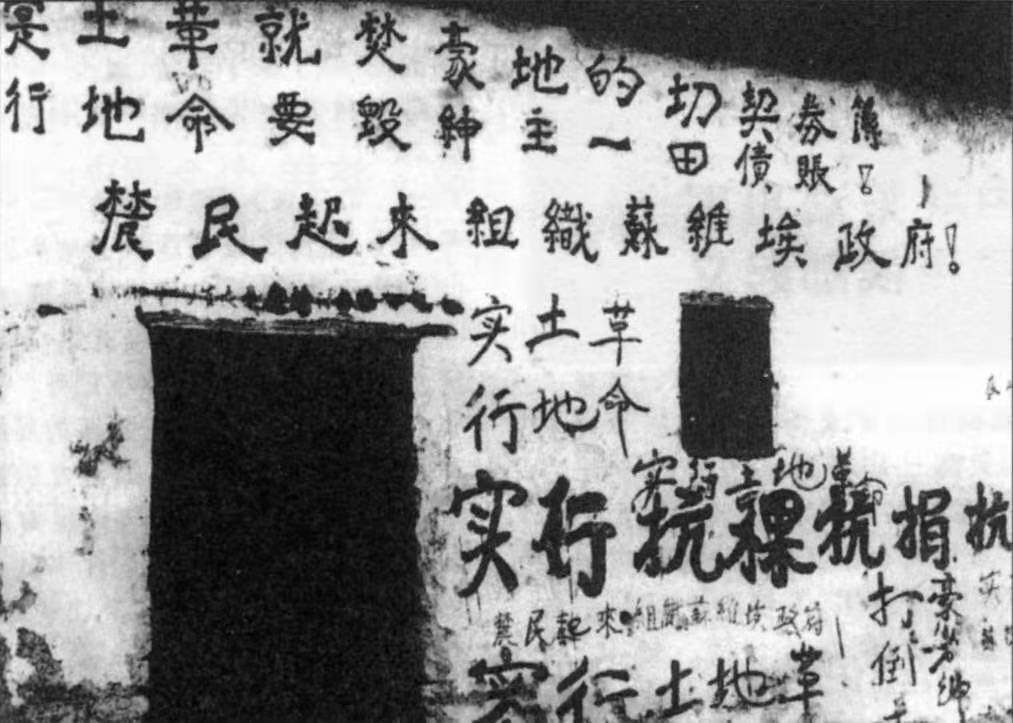 寔行土地革命就要焚毀豪紳地主的一切田契債券賬簿!
農民起來組織蘇維埃政府!
实行土地革命
实行土地革命
实行抗稞抗捐抗
農民起來組織蘇維埃政府!
实行土地革
打倒土豪劣紳